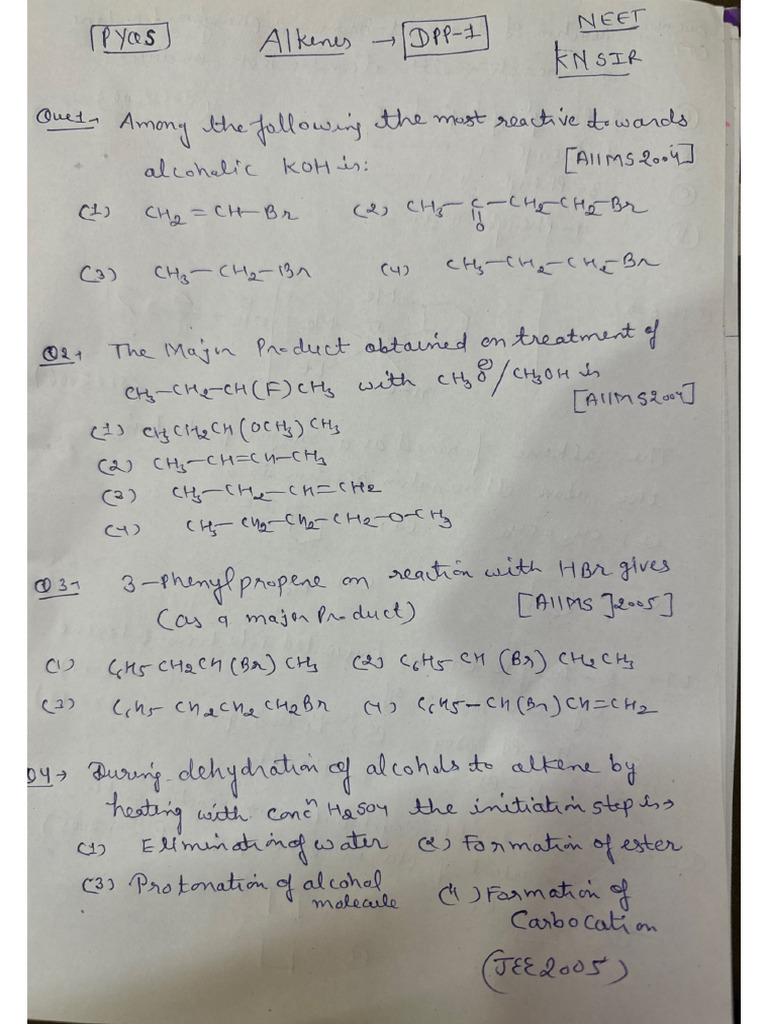 PYQs Alkenes → DPP-1 NEET
KN SIR
Que1→ Among the following the most reactive towards
alcoholic KOH is: [AIIMS 2004]
(1) CH2=CH–Br (2) CH3–C–CH2–CH2–Br
||
O
(3) CH3–CH2–Br (4) CH3–CH2–CH2–Br
Q2→ The Major Product obtained on treatment of
CH3–CH2–CH(F)CH3 with CH3O⊖/CH3OH is
[AIIMS 2004]
(1) CH3CH2CH(OCH3)CH3
(2) CH3–CH=CH–CH3
(3) CH3–CH2–CH=CH2
(4) CH3–CH2–CH2–CH2–O–CH3
Q3→ 3-Phenylpropene on reaction with HBr gives
(as a major Product) [AIIMS]2005]
(1) C6H5 CH2CH(Br)CH3 (2) C6H5 CH(Br)CH2CH3
(3) C6H5 CH2CH2CH2Br (4) C6H5–CH(Br)CH=CH2
Q4→ During dehydration of alcohols to alkene by
heating with concn H2SO4 the initiation step is→
(1) Elimination of water (2) Formation of ester
(3) Protonation of alcohol molecule (4) Formation of
Carbocation
(JEE 2005)